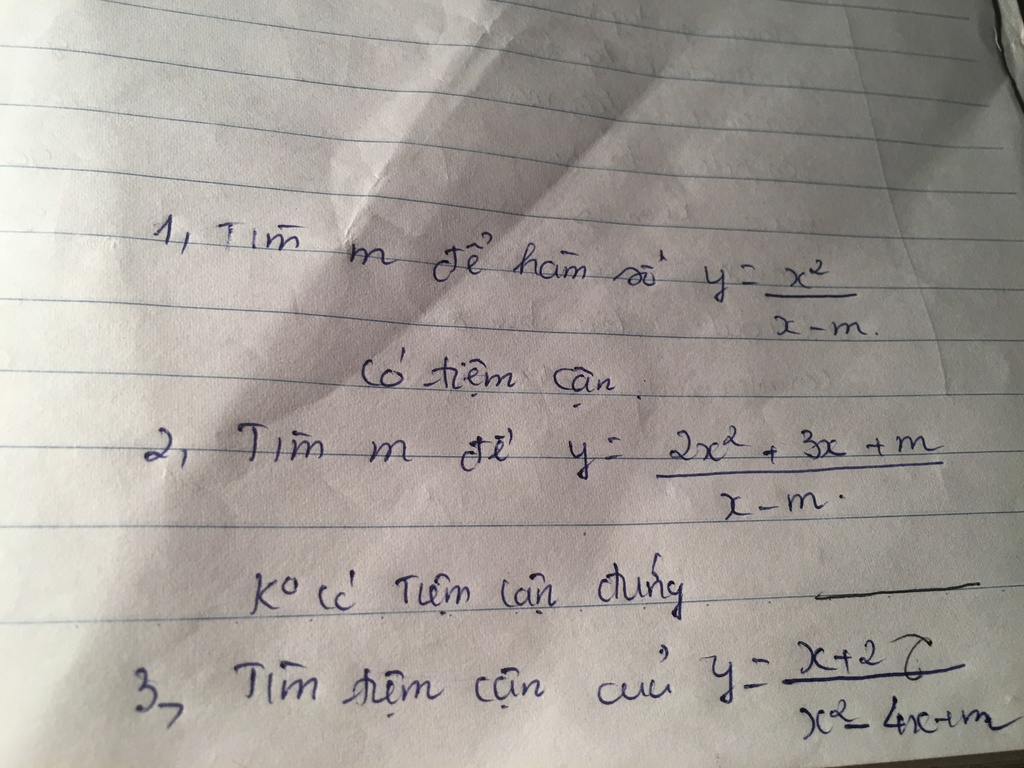 1, Tìm m để hàm số y = x²/(x - m).
Có tiệm cận.
2, Tìm m để y = (2x² + 3x + m)/(x - m).
Kº có Tiệm cận đứng
3, Tìm tiệm cận của y = (x+2)/(x² - 4x+m)